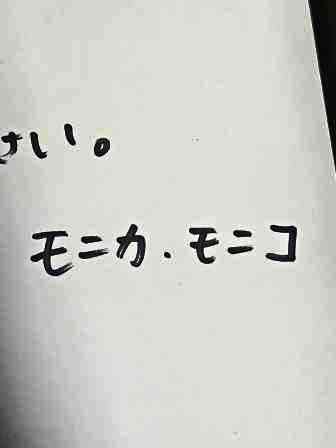 さい。
モニカ.モニコ